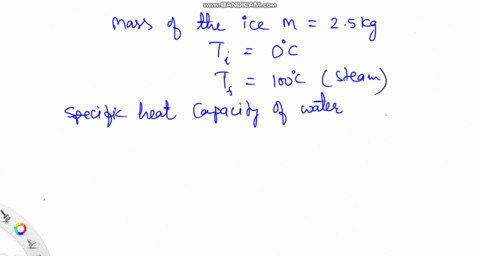 www.BANDICAM.com
Mass of the ice m = 2.5 kg
T_i = 0°C
T_f = 100°C (steam)
Specific heat Capacity of water